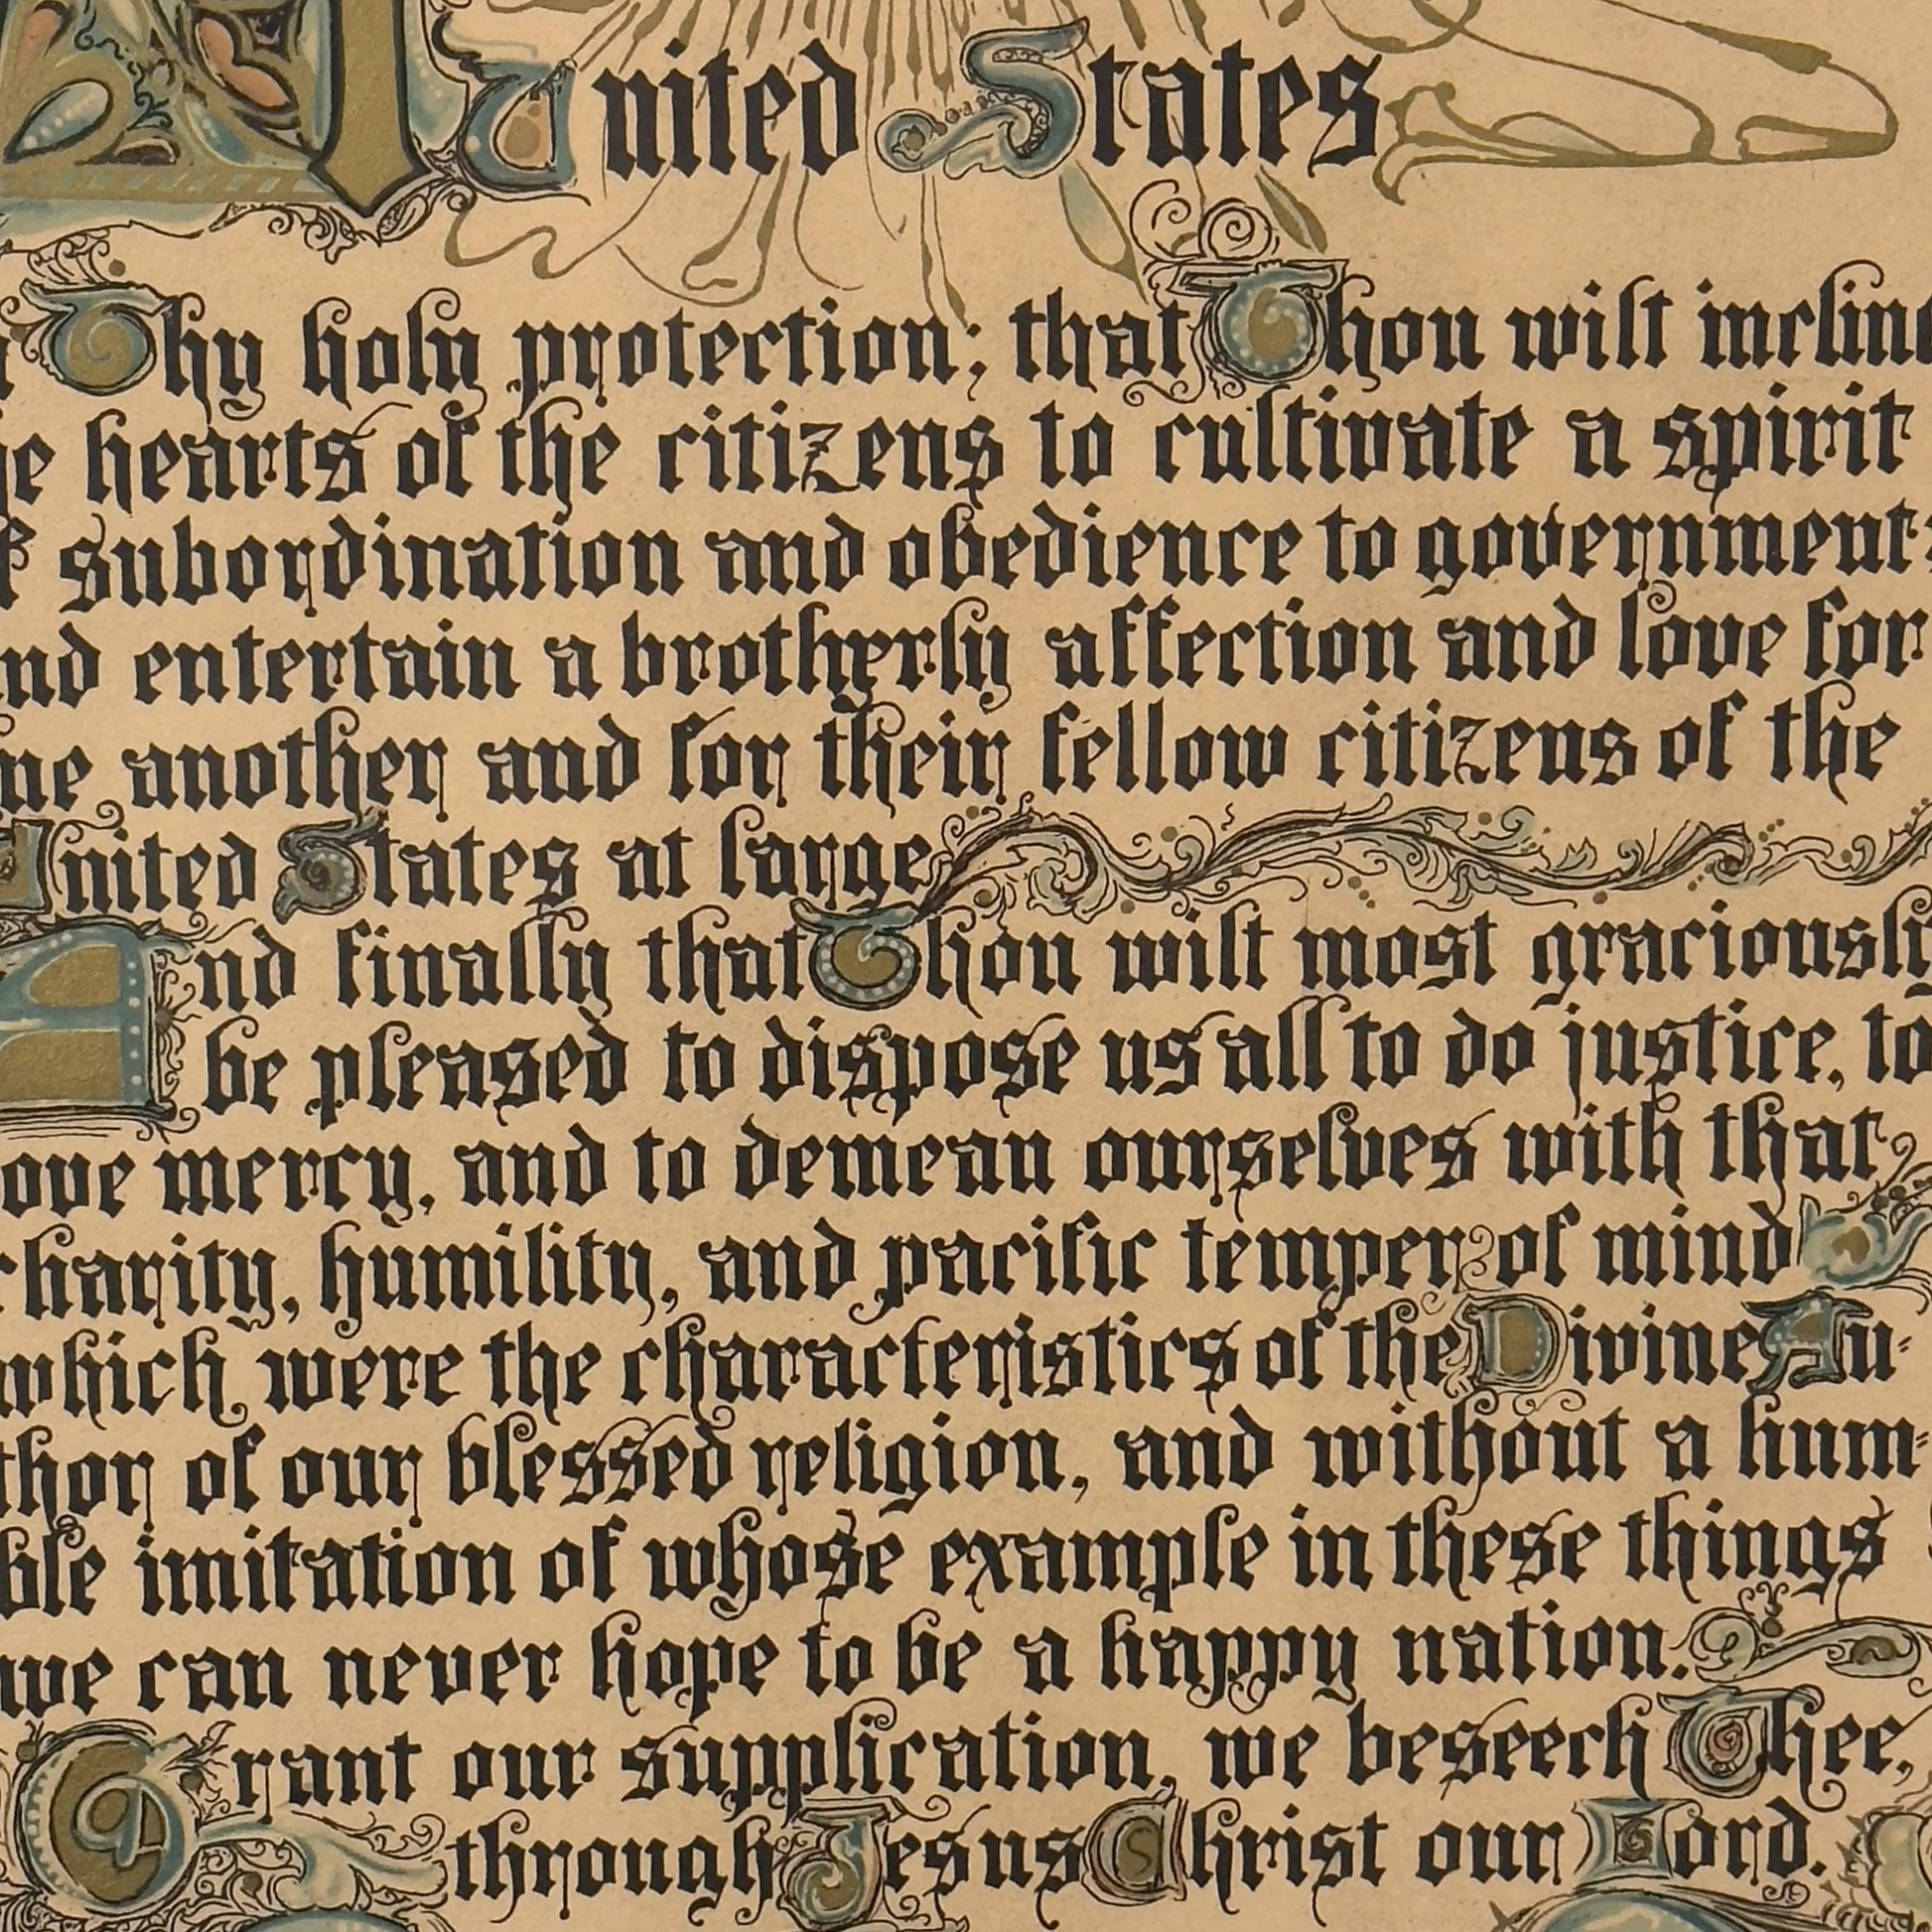 United States
Thy holy protection; that Thou wilt incline
hearts of the citizens to cultivate a spirit
subordination and obedience to government,
and entertain a brotherly affection and love for
one another and for their fellow citizens of the
United States at large
And finally that Thou wilt most graciously
be pleased to dispose us all to do justice, to
love mercy, and to demean ourselves with that
charity, humility, and pacific temper of mind
which were the characteristics of the Divine Au-
thor of our blessed religion, and without a hum-
ble imitation of whose example in these things
we can never hope to be a happy nation.
Grant our supplication, we beseech Thee,
through Jesus Christ our Lord.